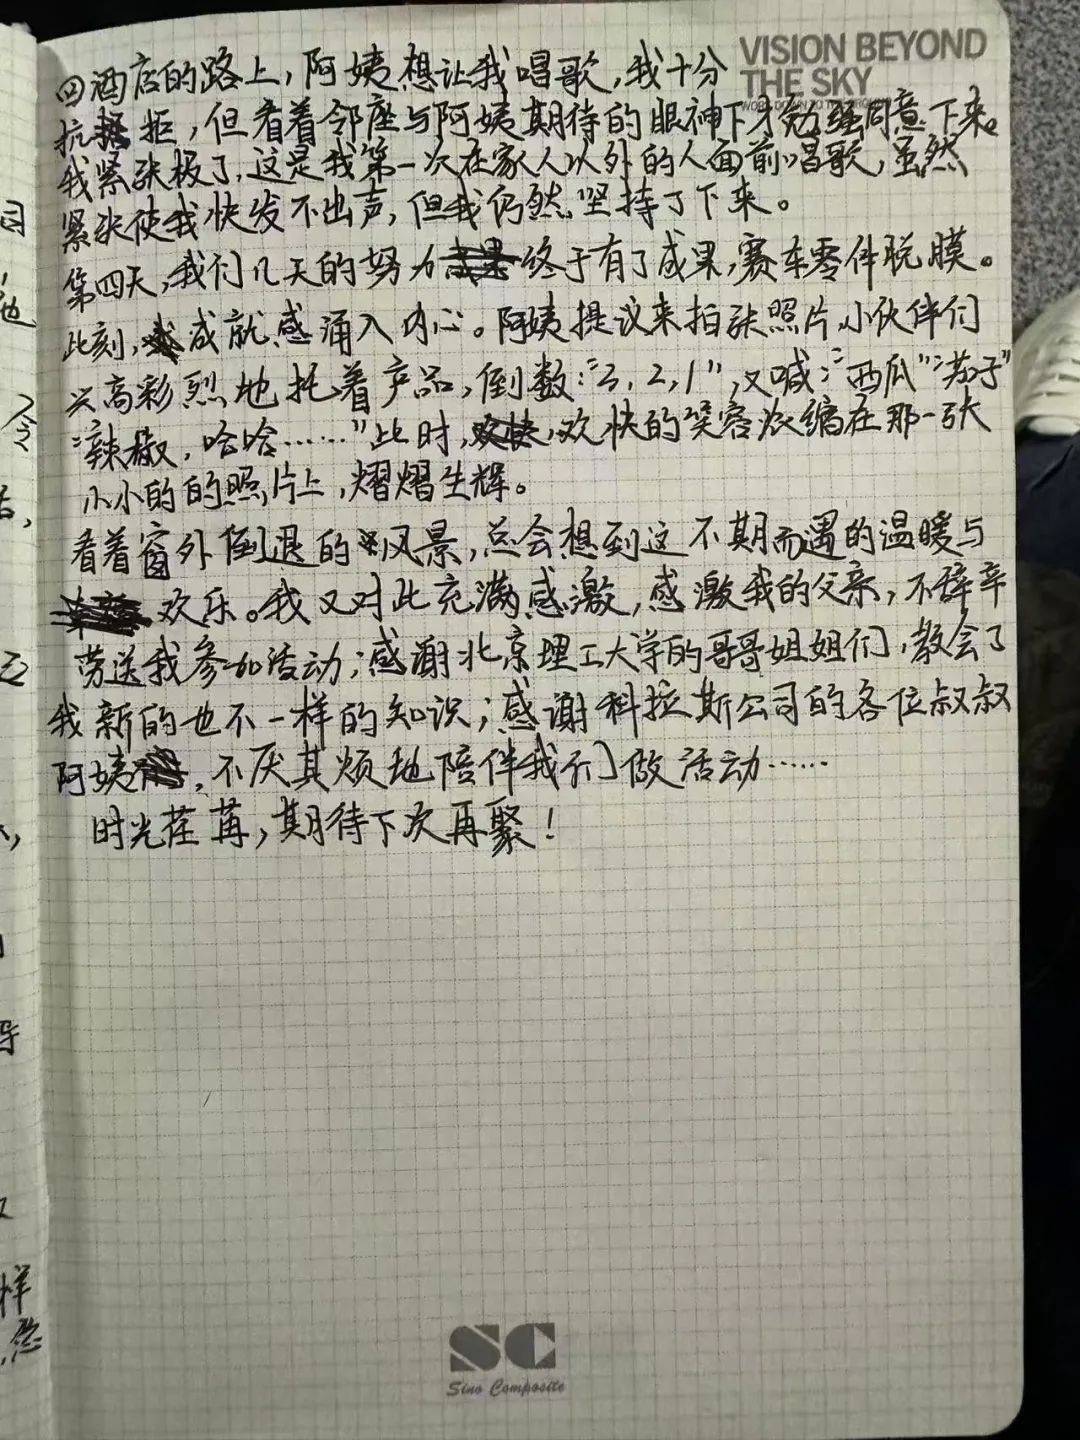 VISION BEYOND
THE SKY
回酒店的路上，阿姨想让我唱歌，我十分
抗拒，但看着邻座与阿姨期待的眼神下才勉强同意下来。
我紧张极了，这是我第一次在家人以外的人面前唱歌，虽然
紧张使我快发不出声，但我仍然坚持了下来。
第四天，我们几天的努力终于有了成果，赛车零件脱膜。
此刻，成就感涌入内心。阿姨提议来拍张照片，小伙伴们
兴高彩烈地托着产品，倒数：“3，2，1”，又喊：“西瓜”“茄子”
“辣椒，哈哈……”此时，欢快的笑容浓缩在那一张
小小的的照片上，熠熠生辉。
看着窗外倒退的风景，总会想到这不期而遇的温暖与
欢乐。我又对此充满感激，感激我的父亲，不辞辛
劳送我参加活动；感谢北京理工大学的哥哥姐姐们，教会了
我新的也不一样的知识；感谢科拉斯公司的各位叔叔
阿姨，不厌其烦地陪伴我们做活动……
时光荏苒，期待下次再聚！
SC
Sino Composite